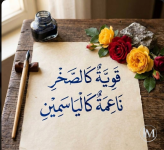 قَوِيَّةٌ كَالصَّخْرِ
نَاعِمَةٌ كَالْيَاسَمِيْنِ